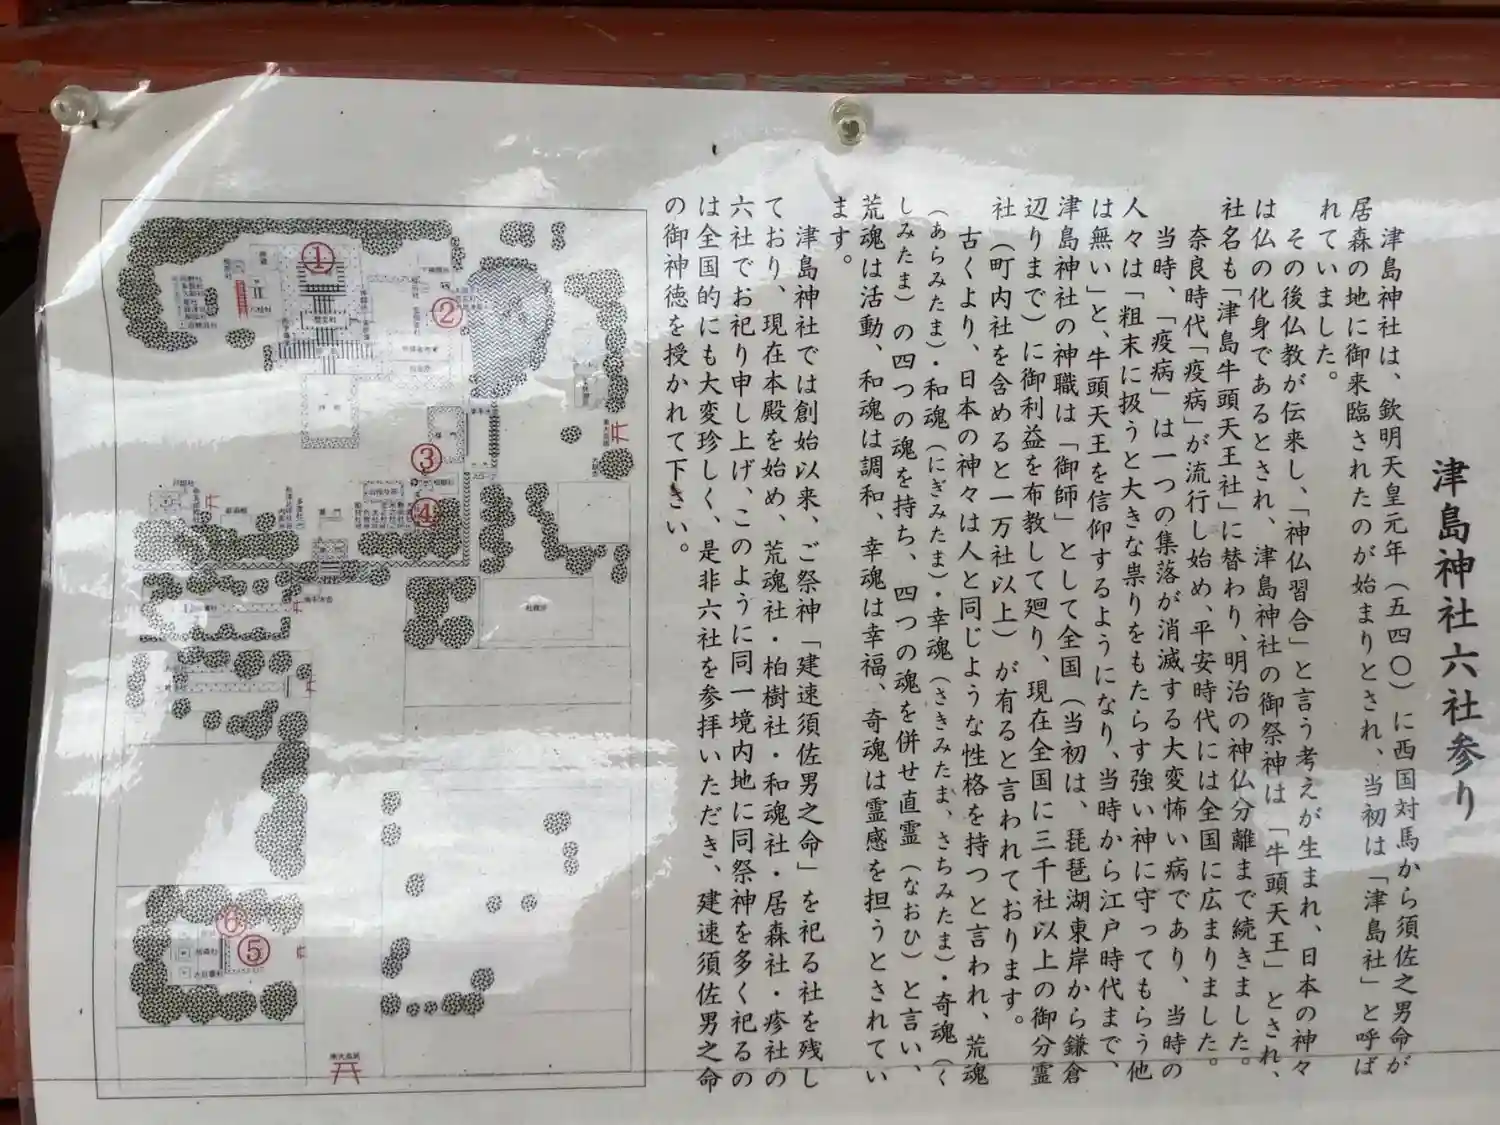 津島神社六社参り
津島神社は、欽明天皇元年（五四〇）に西国対馬から須佐之男命が
居森の地に御来臨されたのが始まりとされ、当初は「津島社」と呼ば
れていました。
その後仏教が伝来し、「神仏習合」と言う考えが生まれ、日本の神々
は仏の化身であるとされ、津島神社の御祭神は「牛頭天王」とされ、
社名も「津島牛頭天王社」に替わり、明治の神仏分離まで続きました。
奈良時代「疫病」が流行し始め、平安時代には全国に広まりました。
当時、「疫病」は一つの集落が消滅する大変怖い病であり、当時の
人々は「粗末に扱うと大きな祟りをもたらす強い神に守ってもらう他
は無い」と、牛頭天王を信仰するようになり、当時から江戸時代まで、
津島神社の神職は「御師」として全国（当初は、琵琶湖東岸から鎌倉
辺りまで）に御利益を布教して廻り、現在全国に三千社以上の御分霊
社（町内社を含めると一万社以上）が有ると言われております。
古くより、日本の神々は人と同じような性格を持つと言われ、荒魂
（あらみたま）・和魂（にぎみたま）・幸魂（さきみたま、さちみたま）・奇魂（く
しみたま）の四つの魂を持ち、四つの魂を併せ直霊（なおひ）と言い、
荒魂は活動、和魂は調和、幸魂は幸福、奇魂は霊感を担うとされてい
ます。
津島神社では創始以来、ご祭神「建速須佐男之命」を祀る社を残し
ており、現在本殿を始め、荒魂社・柏樹社・和魂社・居森社・疹社の
六社でお祀り申し上げ、このように同一境内地に同祭神を多く祀るの
は全国的にも大変珍しく、是非六社を参拝いただき、建速須佐男之命
の御神徳を授かれて下さい。
①
②
③
④
⑥
⑤